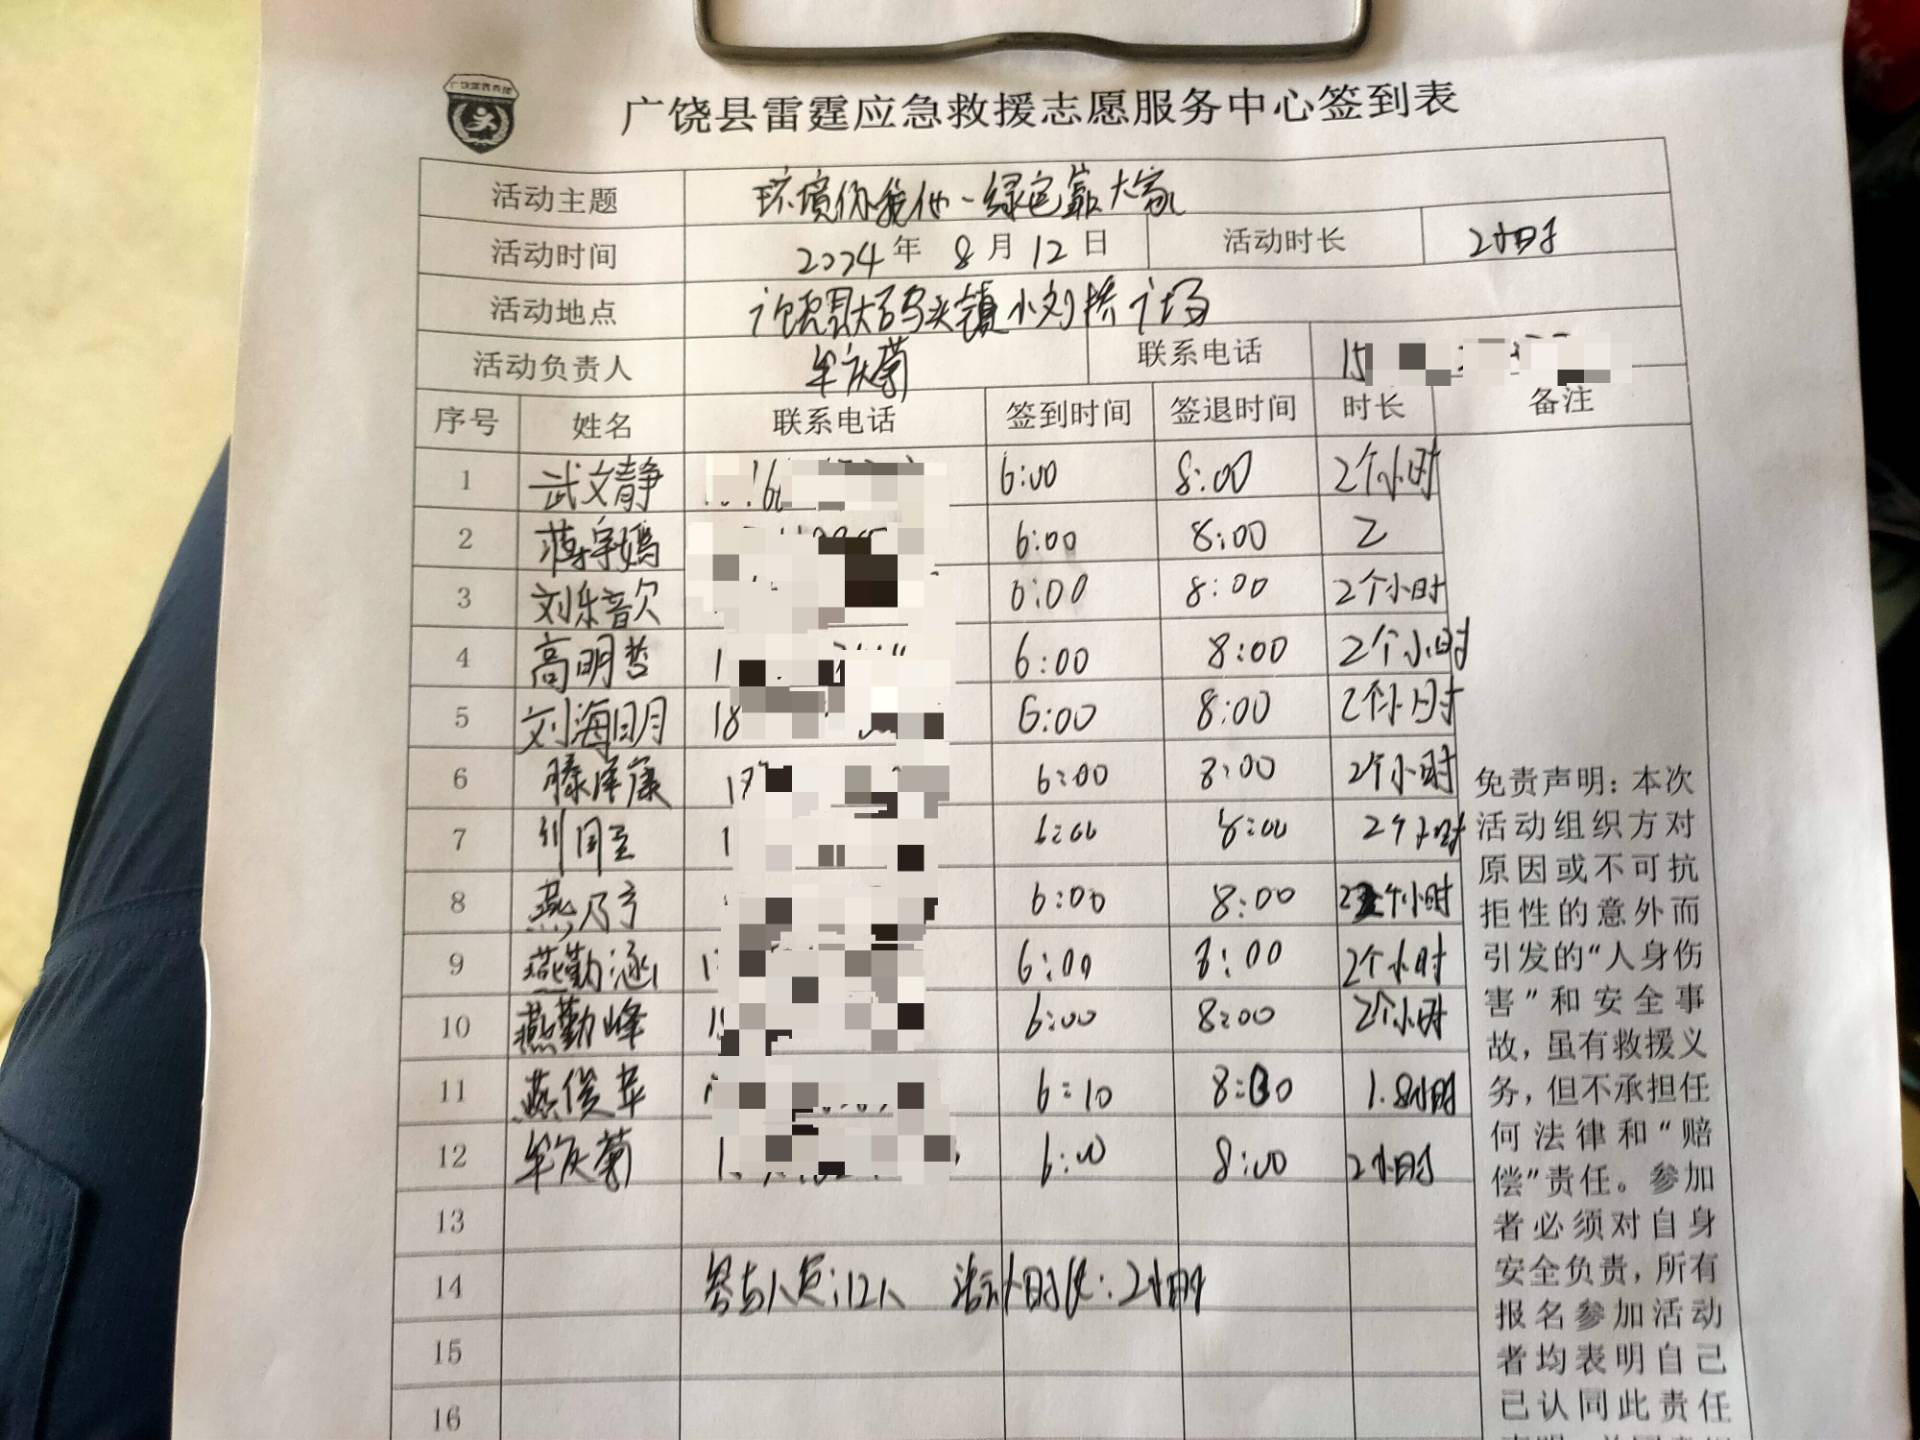 广饶县雷霆应急救援志愿服务中心签到表
活动主题 环境你我他-绿色靠大家
活动时间 2024年 8月12日 活动时长 2小时
活动地点 广饶县大码头镇小刘桥广场
活动负责人 牟庆菊 联系电话 15
序号 姓名 联系电话 签到时间 签退时间 时长 备注
1 武文静 6:00 8:00 2个小时
2 蒋宇嫣 6:00 8:00 2
3 刘乐音 6:00 8:00 2个小时
4 高明哲 1 6:00 8:00 2个小时
5 刘海明 18 6:00 8:00 2个小时
6 滕泽宸 6:00 8:00 2个小时
7 1 6:00 8:00 2个小时
8 燕乃亨 6:00 8:00 2个小时
9 燕勤涵 1 6:00 8:00 2个小时
10 燕勤峰 6:00 8:00 2个小时
11 燕俊苹 6:10 8:00 1.8小时
12 牟庆菊 1 6:00 8:00 2小时
13
14 参与人员:12人 活动时长:2小时
15
16
免责声明:本次
活动组织方对
原因或不可抗
拒性的意外而
引发的“人身伤
害”和安全事
故,虽有救援义
务,但不承担任
何法律和“赔
偿”责任。参加
者必须对自身
安全负责,所有
报名参加活动
者均表明自己
已认同此责任